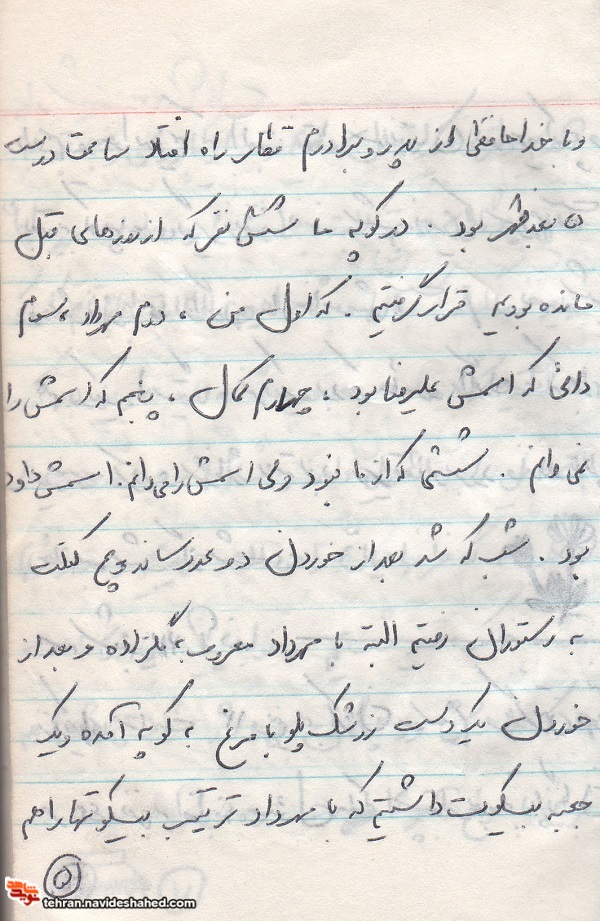 و با خداحافظی از پدر و برادرم قطار راه افتاد ساعت درست
۵ بعدظهر بود . در کوپه ما شش نفر که از روزهای قبل
مانده بودیم قرار گرفتیم . که اول من ، دوم مهرداد ، سوم
دائی که اسمش علیرضا بود ، چهارم کمال ، پنجم که اسمش را
نمی دانم . ششمی که از ما نبود ولی اسمش را می دانم . اسمش داود
بود . شب که شد بعد از خوردن دو عدد ساندویچ کتلت
به رستوران رفتیم البته با مهرداد معروف به گلزاده و بعد از
خوردن یک دست زرشک پلو با مرغ به کوپه آمده و یک
جعبه بیسکویت داشتیم که با مهرداد ترتیب بیسکوتها را هم
۵
tehran.navideshahed.com